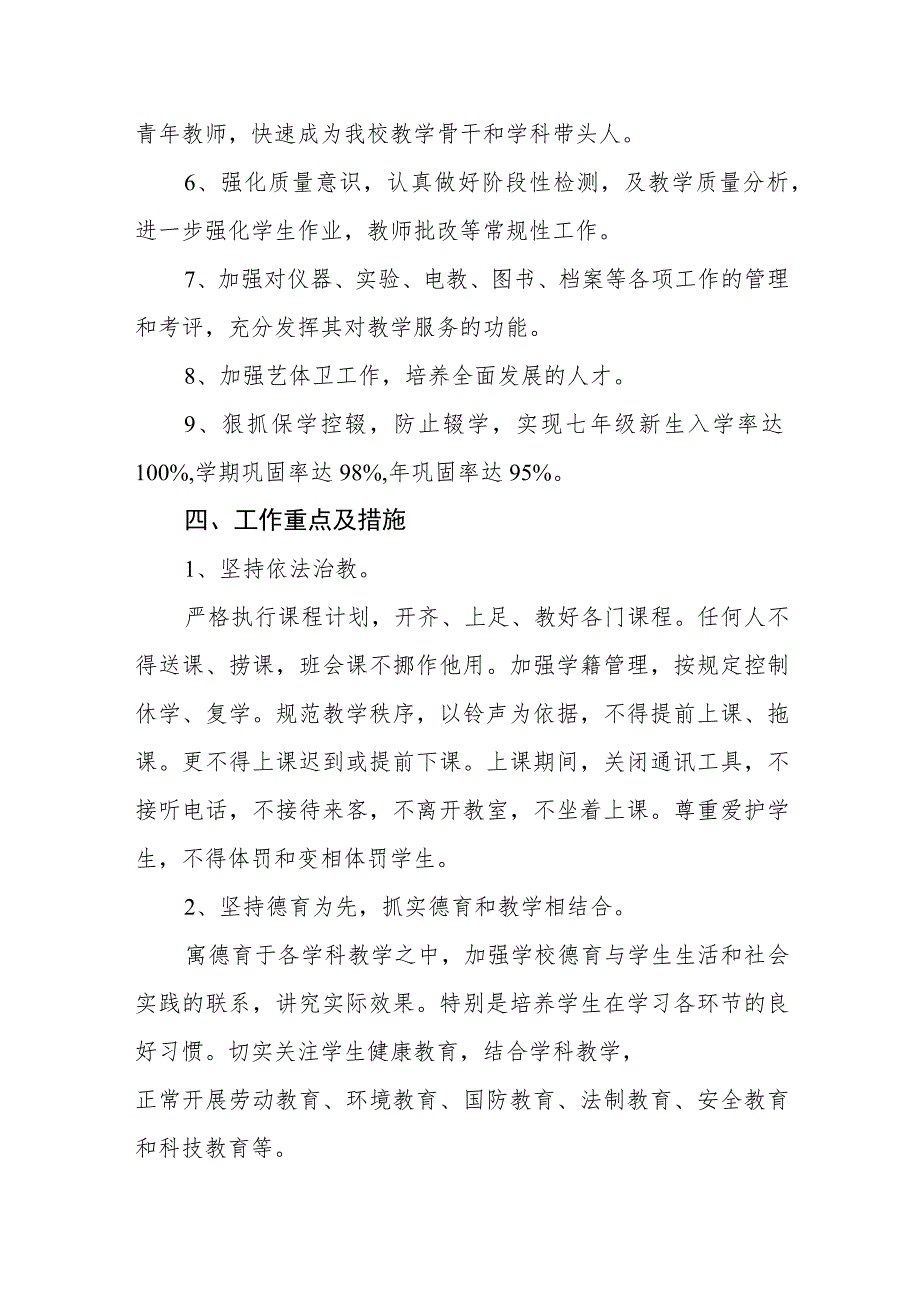 青年教师，快速成为我校教学骨干和学科带头人。
6、强化质量意识，认真做好阶段性检测，及教学质量分析，
进一步强化学生作业，教师批改等常规性工作。
7、加强对仪器、实验、电教、图书、档案等各项工作的管理
和考评，充分发挥其对教学服务的功能。
8、加强艺体卫工作，培养全面发展的人才。
9、狠抓保学控辍，防止辍学，实现七年级新生入学率达
100%,学期巩固率达98%,年巩固率达95%。
四、工作重点及措施
1、坚持依法治教。
严格执行课程计划，开齐、上足、教好各门课程。任何人不
得送课、捞课，班会课不挪作他用。加强学籍管理，按规定控制
休学、复学。规范教学秩序，以铃声为依据，不得提前上课、拖
课。更不得上课迟到或提前下课。上课期间，关闭通讯工具，不
接听电话，不接待来客，不离开教室，不坐着上课。尊重爱护学
生，不得体罚和变相体罚学生。
2、坚持德育为先，抓实德育和教学相结合。
寓德育于各学科教学之中，加强学校德育与学生生活和社会
实践的联系，讲究实际效果。特别是培养学生在学习各环节的良
好习惯。切实关注学生健康教育，结合学科教学，
正常开展劳动教育、环境教育、国防教育、法制教育、安全教育
和科技教育等。